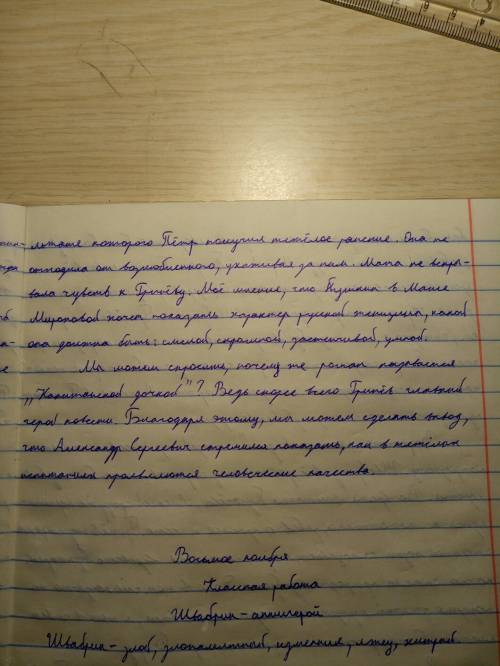 льтате которого Пётр получил тяжёлое ранение. Она не
отходила от возлюбленного, ухаживая за ним. Маша не скры-
вала чувств к Гринёву. Моё мнение, что Пушкин в Маше
Мироновой хотел показать характер русской женщины, какой
она должна быть: смелой, скромной, застенчивой, умной.
Мы можем спросить, почему же роман называется
„Капитанской дочкой"? Ведь скорее всего Гринёв главный
герой повести. Благодаря этому, мы можем сделать вывод,
что Александр Сергеевич стремился показать, как в тяжёлых
испытаниях проявляются человеческие качества.
Восьмое ноября
Классная работа
Швабрин - антигерой
Швабрин - злой, злопамятный, изменник, лжец, хитрый